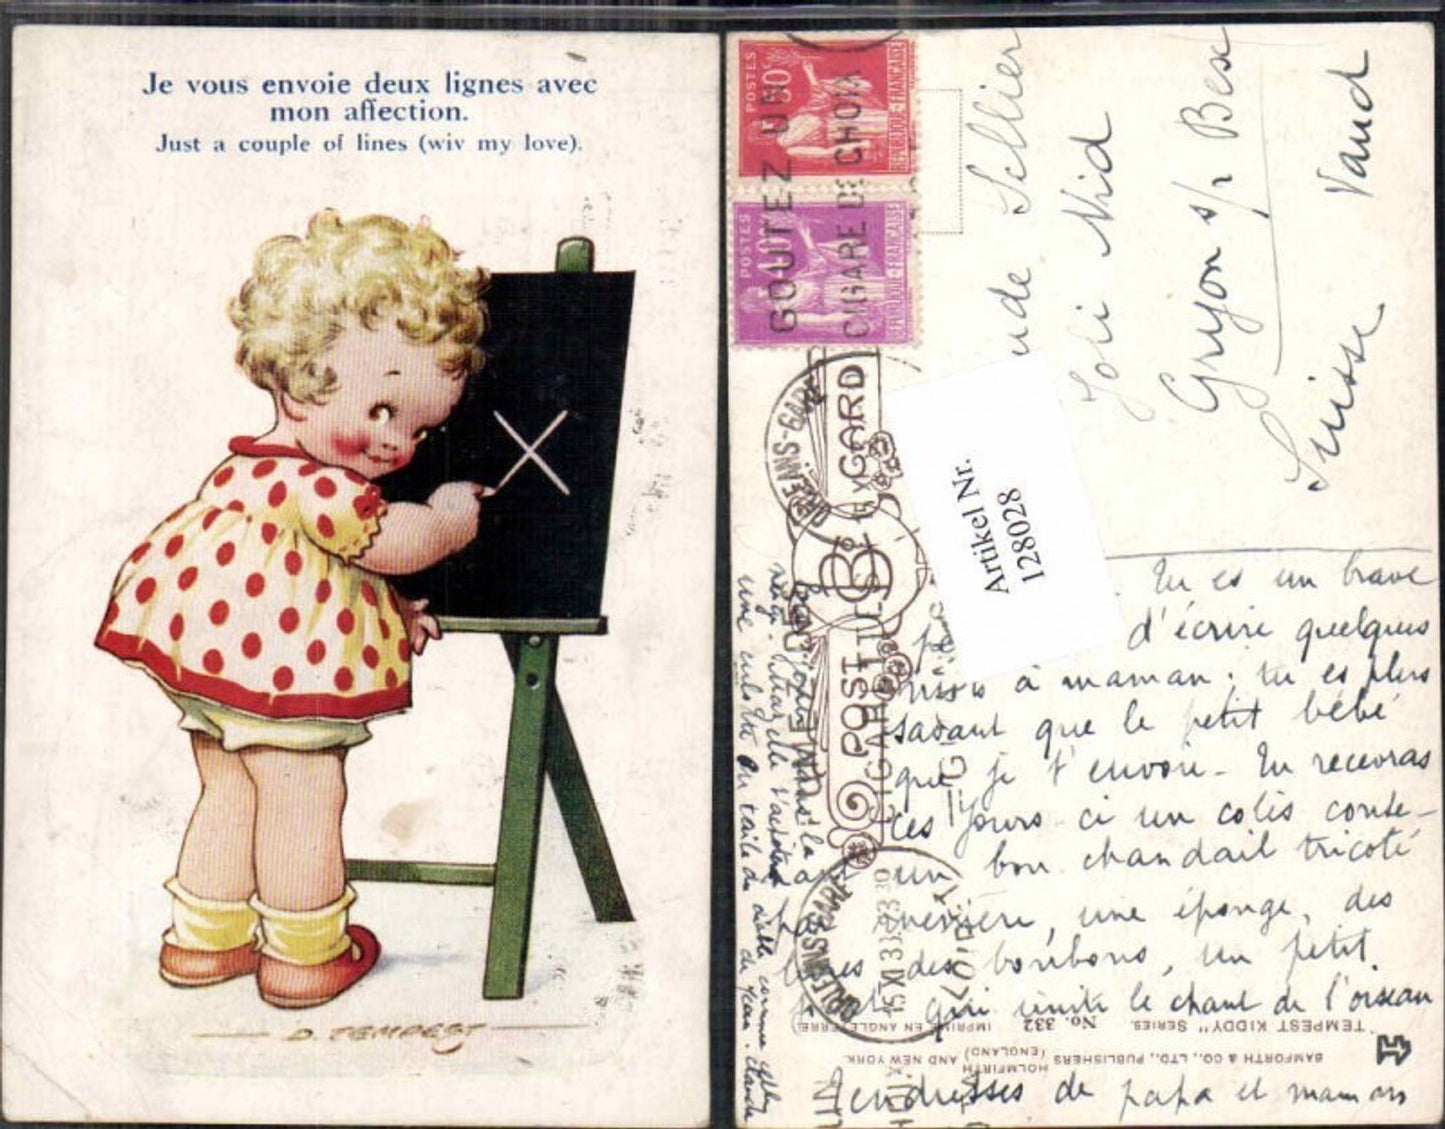 Je vous envoie deux lignes avec
mon affection.
Just a couple of lines (wiv my love).
D. TEMPEST
POSTES
50c
REPUBLIQUE-FRANÇAISE
POSTES
REPUBLIQUE-FRANÇAISE
GOUTEZ UN
CIGARE DE CHOIX
ORLEANS-GARE
POST CARD
Joli Nid
Gryon s/ Bex
Suisse Vaud
Artikel Nr.
128028
Tu es un brave
d'écrire quelques
mots à maman. tu es plus
savant que le petit bébé
que je t'envoie. Tu recevras
ces jours-ci un colis conte-
nant un bon chandail tricoté
une éponge, des
des bonbons, un petit
qui imite le chant de l'oiseau
Tendresses de papa et maman
"TEMPEST KIDDY" SERIES. No. 332 IMPRIMÉ EN ANGLETERRE
BAMFORTH & CO., LTD., PUBLISHERS HOLMFIRTH (ENGLAND) AND NEW YORK.